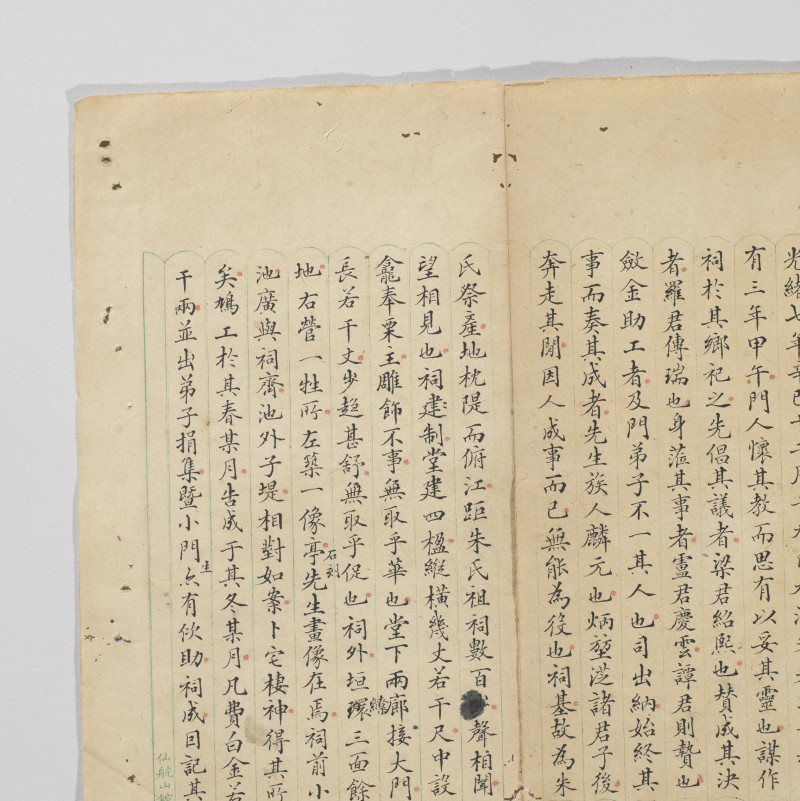 光緒七年辛巳十二月
有三年甲午門人懷其教而思有以妥其靈也謀作
祠於其鄉祀之先倡其議者梁君紹熙也贊成其決
者羅君傳瑞也身蒞其事者盧君慶雲譚君則贊也
斂金助工者及門弟子不一其人也司出納始終其
事而奏其成者先生族人麟元也炳堃從諸君子後
奔走其閒因人成事而已無能為役也祠基故為朱
氏祭產地枕隄而俯江距朱氏祖祠數百聲相聞
望相見也祠建制堂建四楹縱橫幾丈若干尺中設
龕奉栗主雕飾不事無取乎華也堂下兩廊接大門
長若干丈步趨甚舒無取乎促也祠外垣環繚三面餘
地右營一牲所左築一像亭石刻先生畫像在焉祠前小
池廣與祠齊池外子堤相對如案卜宅棲神得其所
矣鳩工於其春某月告成于其冬某月凡費白金若
干兩並出弟子捐集暨小門生亦有佽助祠成回記其
仙航山